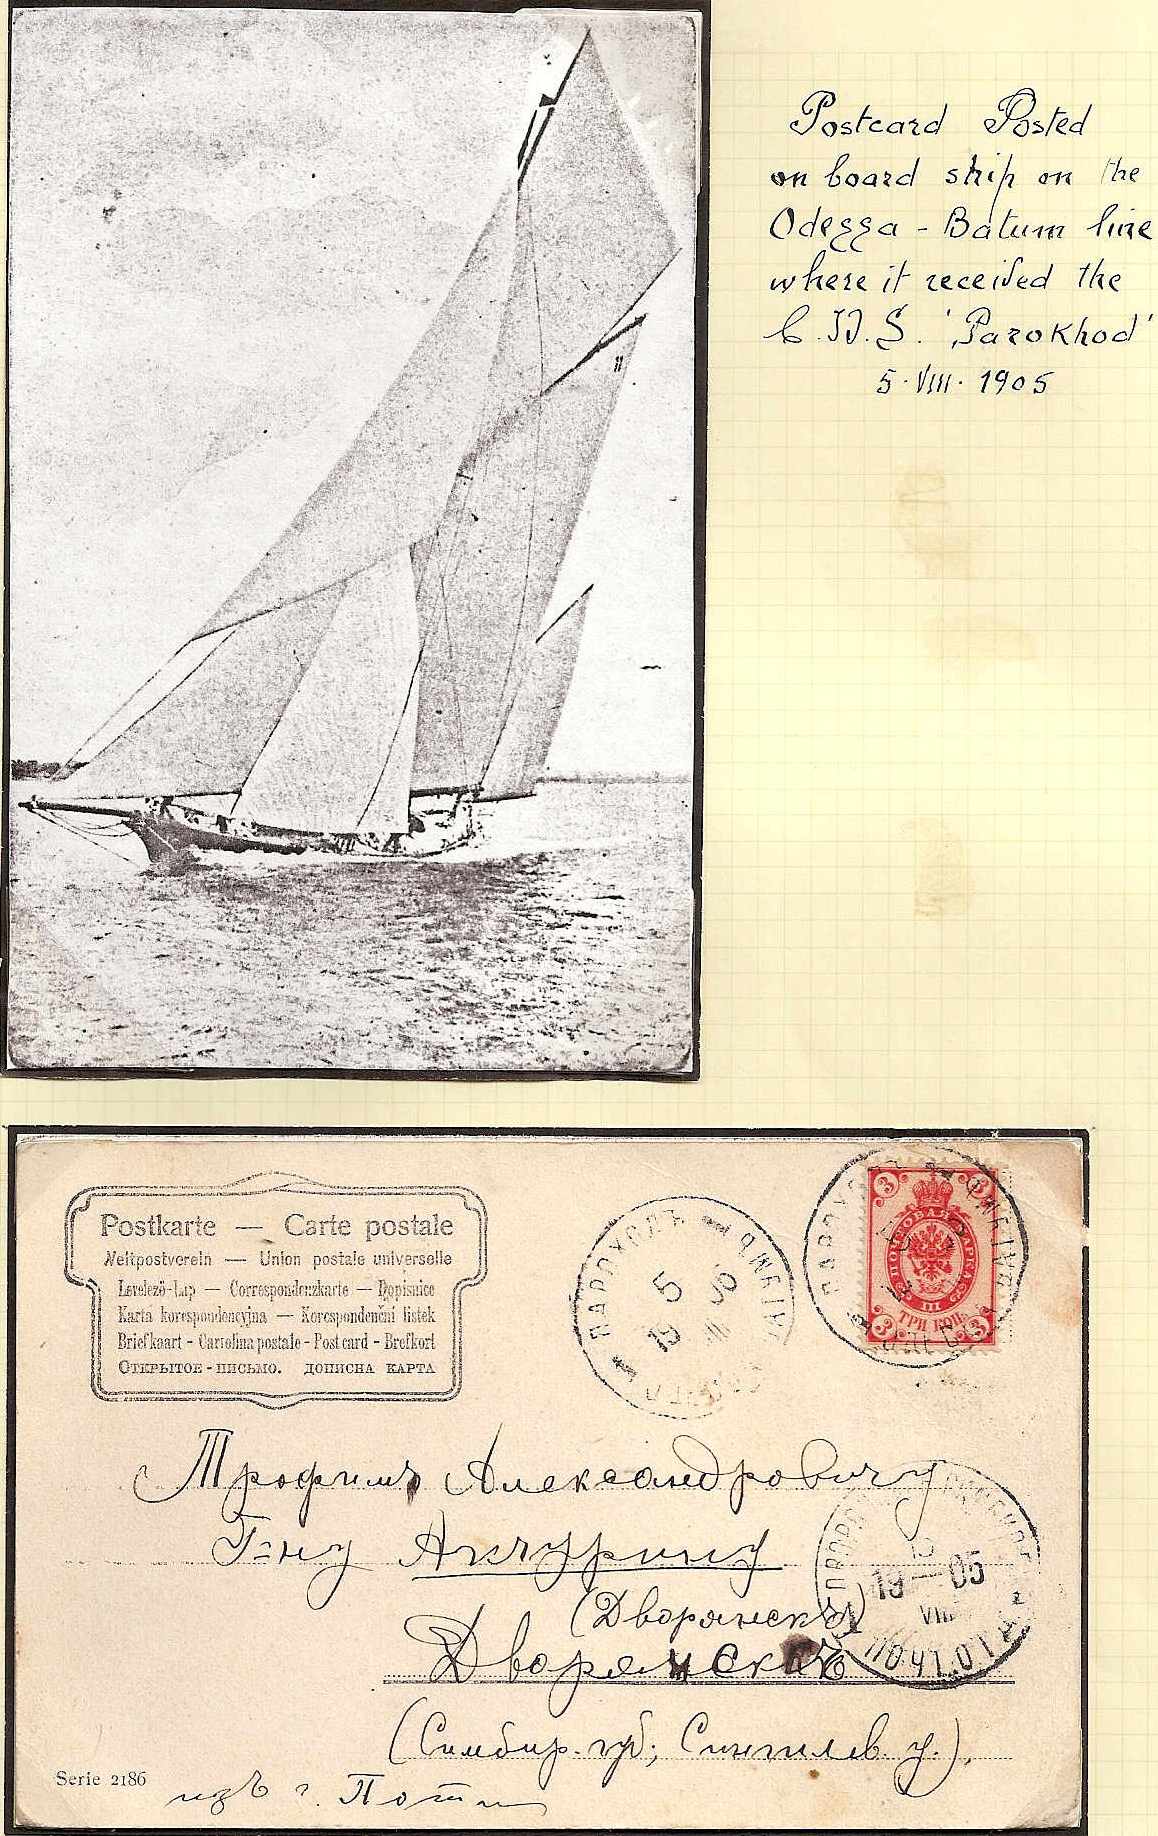 Postcard Posted
on board ship on the
Odessa - Batum line
where it received the
C.D.S. 'Parokhod'
5. VIII. 1905
11
Postkarte — Carte postale
Weltpostverein — Union postale universelle
Levelező-Lap — Correspondenzkarte — Dopisnice
Karta korespondencyjna — Korespondenční listek
Briefkaart - Cartolina postale - Post card - Brefkort
Открытое - письмо. дописна карта
ПАРОХОДЪ
5
19 05
VIII
3 3
ПОЧТОВАЯ МАРКА
III
ТРИ КОП.
3 3
Трофимъ Александровичу
Г=ну Акчурину
(Дворянскъ)
Дворянскъ
19 05
VIII
(Симбир. губ; Сингилев. у.).
Serie 2186
изъ г. Поти